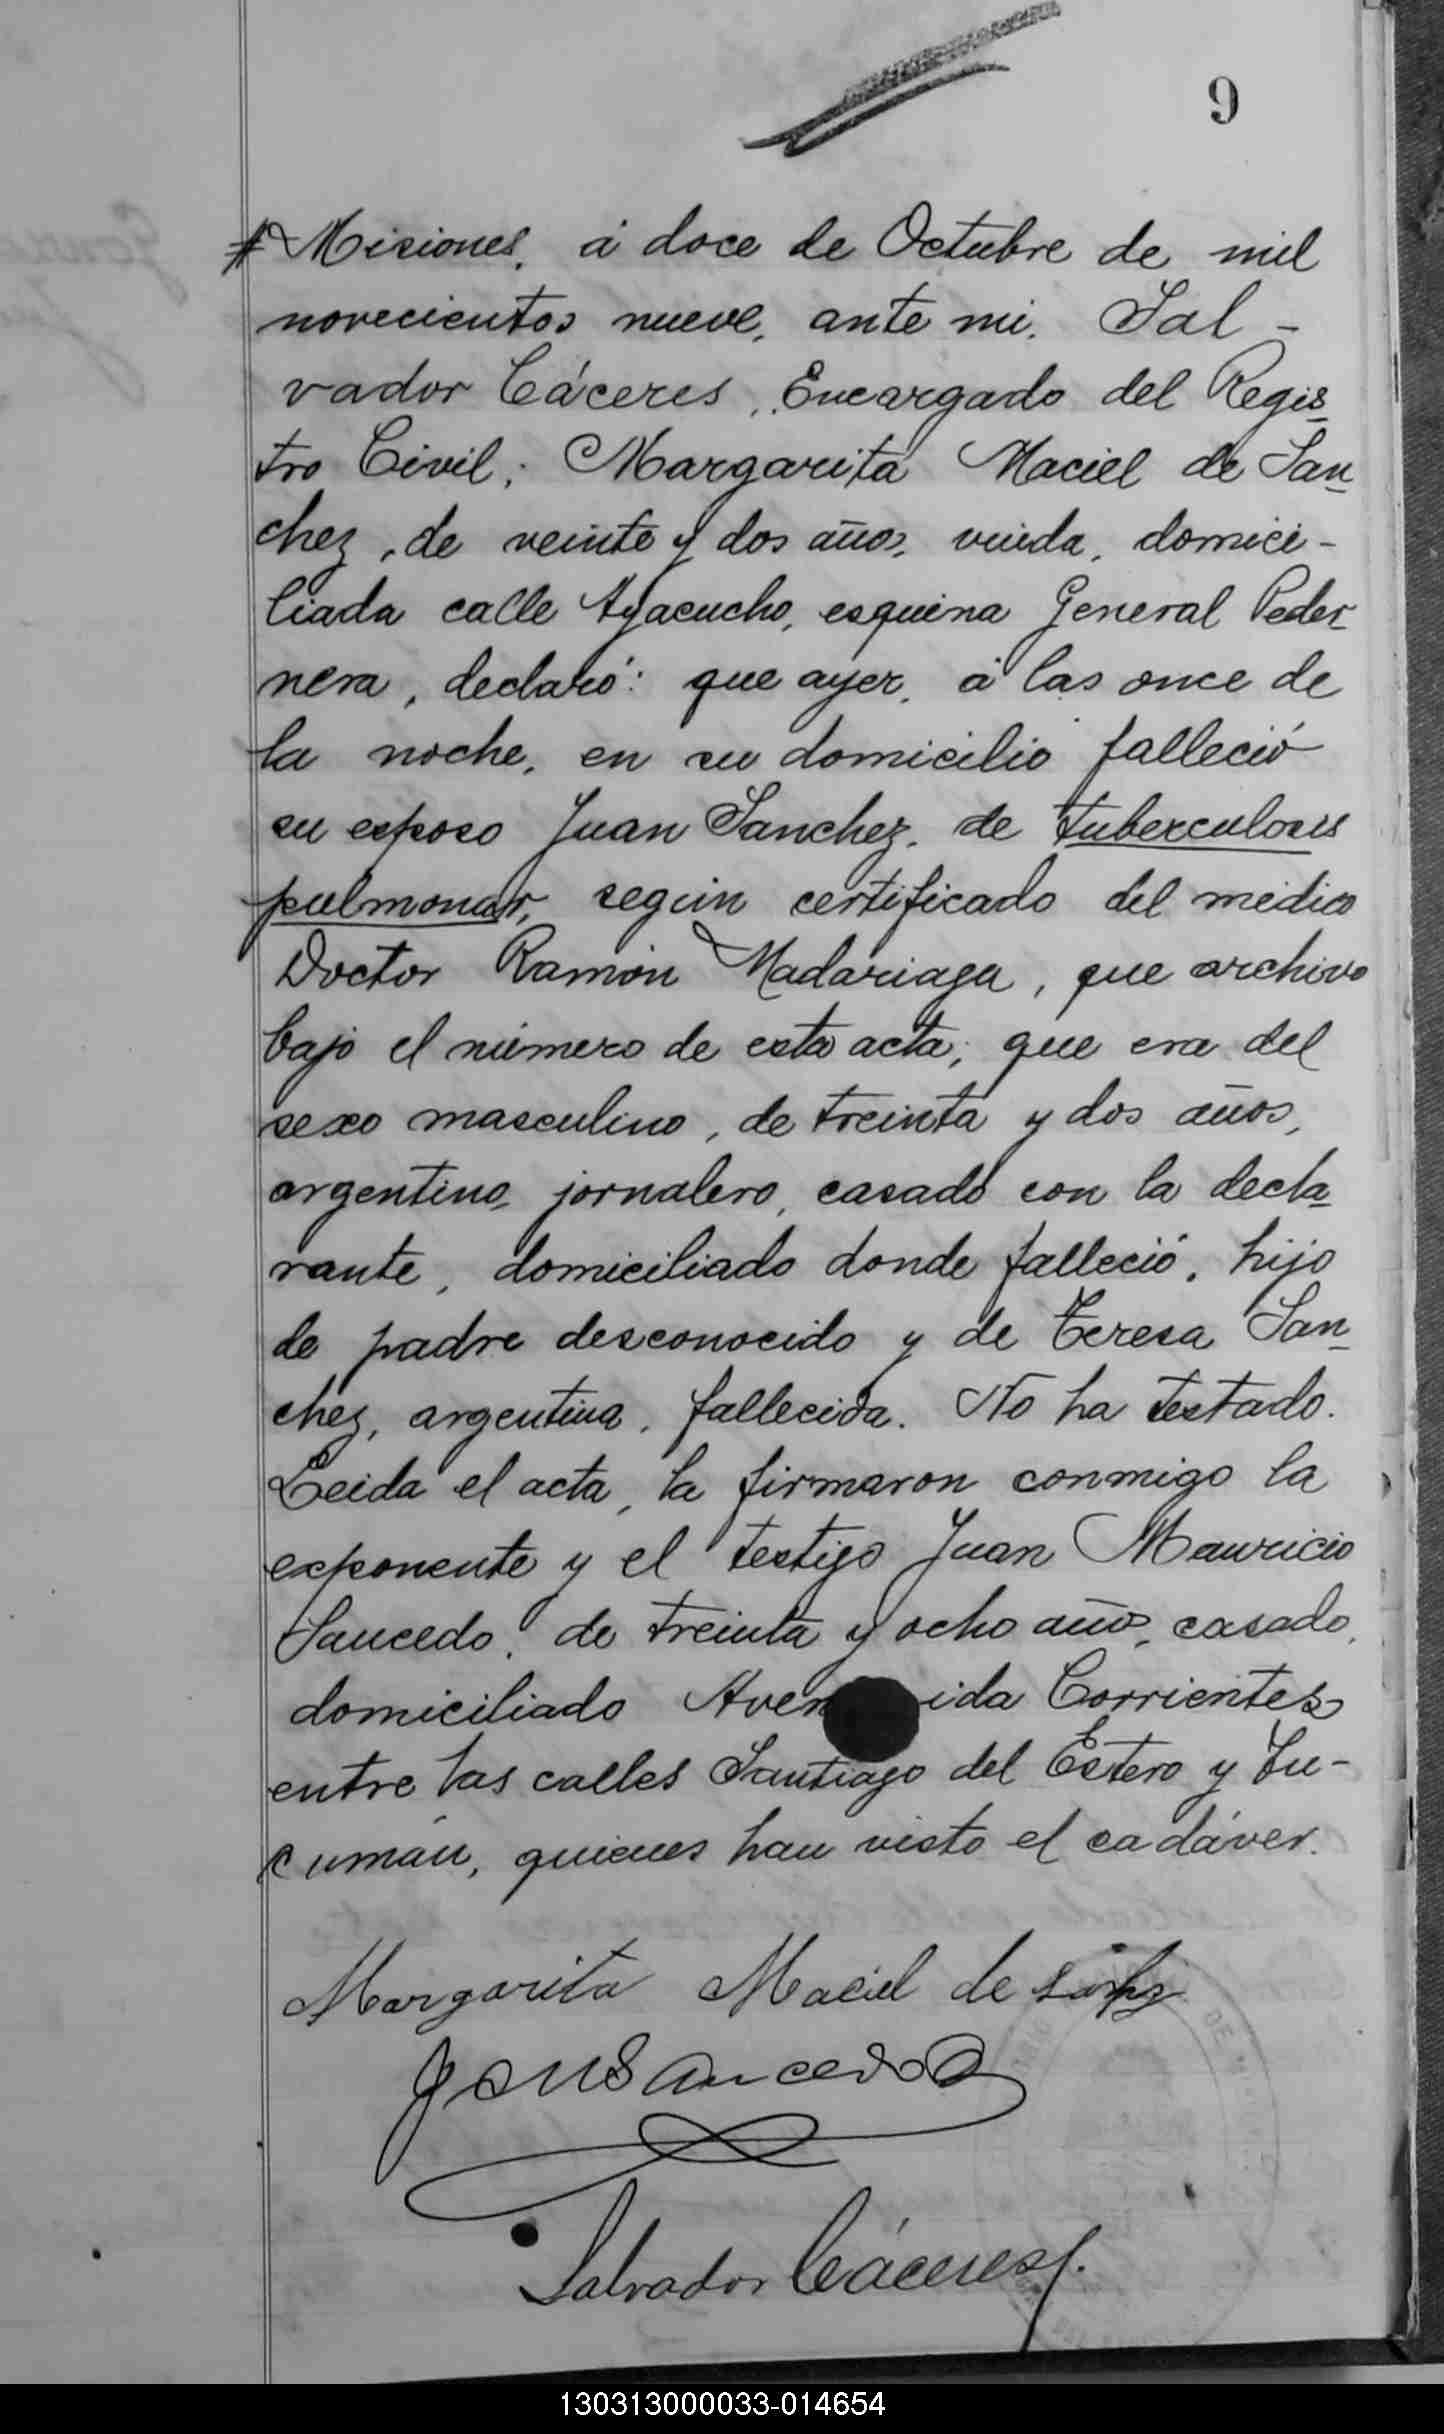 9
Misiones, á doce de Octubre de mil
novecientos nueve, ante mi, Sal-
vador Cáceres, Encargado del Regis-
tro Civil; Margarita Maciel de San-
chez, de veinte y dos años, viuda, domici-
liada calle Ayacucho, esquina General Peder-
nera, declaró: que ayer, á las once de
la noche, en su domicilio falleció
su esposo Juan Sanchez, de tuberculosis
pulmonar, según certificado del médico
Doctor Ramón Madariaga, que archivo
bajo el número de esta acta; que era del
sexo masculino, de treinta y dos años,
argentino, jornalero, casado con la decla-
rante, domiciliado donde falleció, hijo
de padre desconocido y de Teresa San-
chez, argentina, fallecida. No ha testado.
Leida el acta, la firmaron conmigo la
exponente y el testigo Juan Mauricio
Saucedo, de treinta y ocho años, casado,
domiciliado Avenida Corrientes
entre las calles Santiago del Estero y Tu-
cumán, quienes han visto el cadáver.
Margarita Maciel de
Saucedo
Salvador Cáceres
130313000033-014654